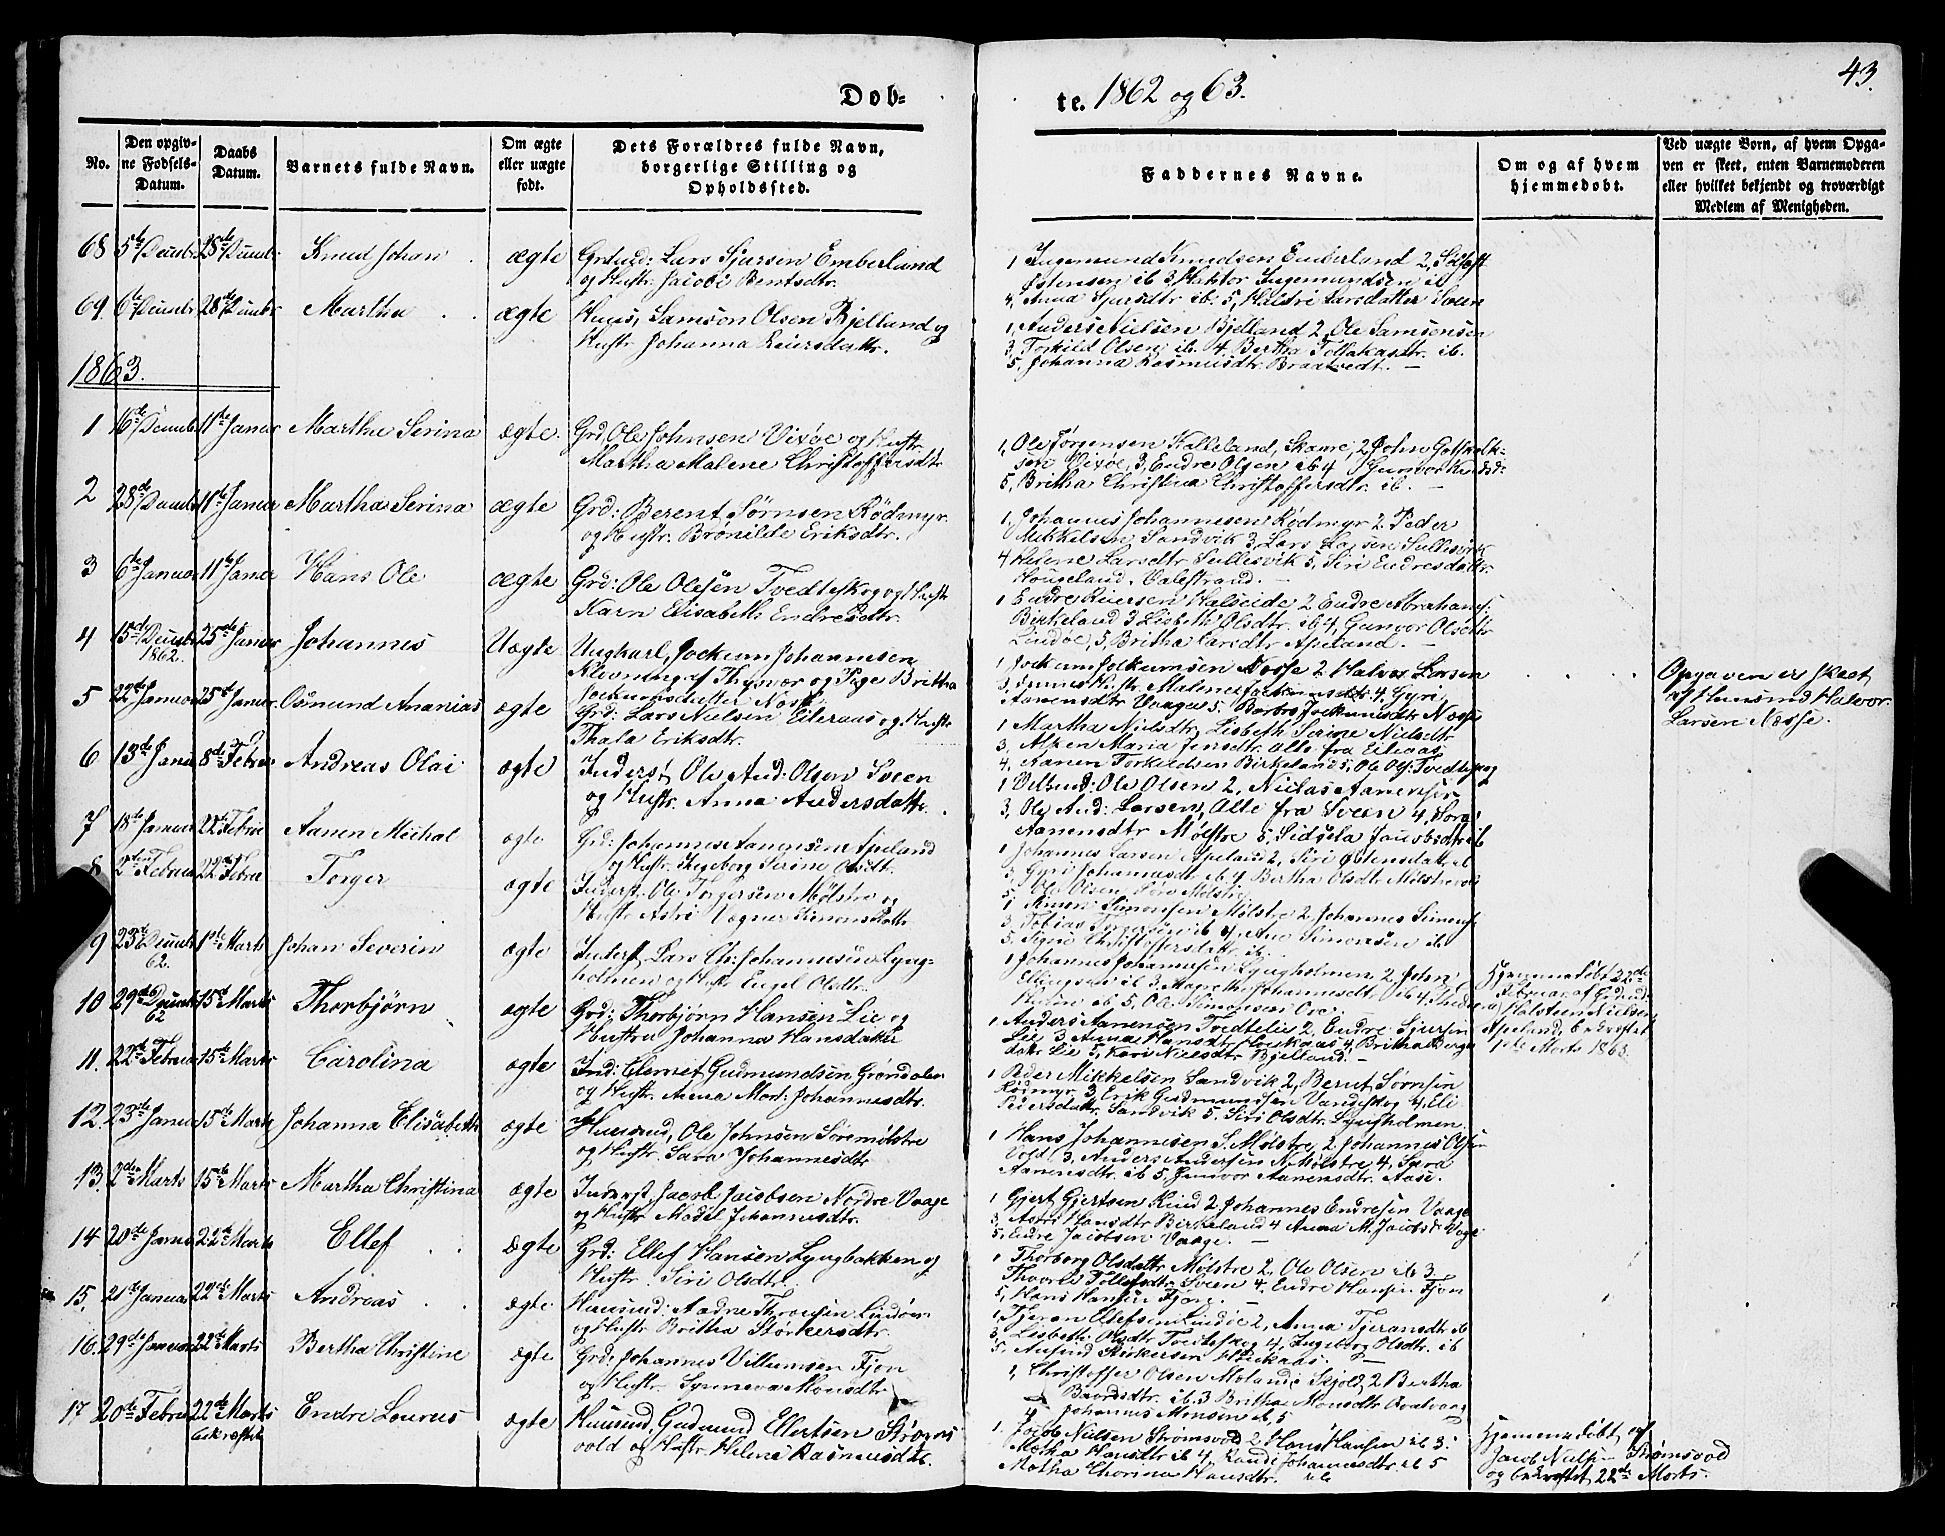 Dob=
te. 1862 og 63.
43.
No.
Den opgiv-
ne Fodsels-
Datum.
Daabs
Datum.
Barnets fulde Navn.
Om ægte
eller uægte
fodt.
Dets Forældres fulde Navn,
borgerlige Stilling og
Opholdssted.
Faddernes Navne.
Om og af hvem
hjemmedobt.
Ved uægte Born, af hvem Opga-
ven er skeet, enten Barnemoderen
eller hvilket bekjendt og troværdigt
Medlem af Menigheden.
68 5te Decmbr 28de Decmbr Knud Johan ægte Lars Sjursen Emberland
og Hustr. Jacobi Bentsdtr.
1 Ingemund Knudsen Emberland 2,
Østensen ib 3, Ingemundsen ib
4, Anna Sjursdtr ib. 5, Larsdatter Sveen
69. 6te Decmbr 28de Decmbr Martha ægte Huus, Samson Olsen Bjelland og
Hustr Johanna Reiersdattr.
1, Anders Nielsen Bjelland 2, Ole Samsonsen
3, Torkild Olsen ib. 4, Bertha ib.
5, Johanna Rasmusdtr Braatvedt. —
1863.
1 16de Decmbr 11te Januar Martha Serina ægte. Grd, Ole Johnsen Vixøe og Hustr.
Martha Malene Christoffersdtr
1, Ole Jørgensen Kalleland, Skaare, 2, John
sen Vixøe, 3, Endre Olsen ib 4
5, Britha Christina Christoffersdtr. ib. —
2 28de Decmbr 11te Januar Martha Serina ægte Grd: Berent Sørnsen Rödmyr
og Hustr. Brönilde Eriksdtr.
1, Johannes Johannesen Rødmyr 2 Peder
Mikkelsen Sandvik 3, Lars Larsen
4 Helene Larsdtr 5, Siri Endresdattr.
Hougeland, Valestrand. —
3 6te Januar 11te Januar Hans Ole ægte Grd: Ole Olesen Tvedteskog og Hustr
Karn Elisabeth Endresdtr.
1 Endre Reiersen Halseide 2 Endre Abrahams:
Birkeland 3 Lisbeth Olsdtr. ib 4, Gunvor Olsdtr
Lindøe, 5, Britha Larsdtr Apeland. —
4 15de Decmbr 25de Januar Johannes Uægte Ungkarl, Jockum Johannesen
1862.
Klevning af Thysvor og Pige Britha
Jockumsdatter Nosse.
1 Jockum Jockumsen Nosse 2 Halvor Larsen
3, Hustr Malene Jockumsdtr 4, Gyri
Aanensdtr Vaaga 5, Barbro Jockumsdtr Nosse
Opgaven er skeet
af Huusmd Halvor
Larsen Nosse.
5 22de Januar 25de Januar Osmund Ananias ægte Grd: Lars Nielsen Eileraas og Hustr
Thala Eriksdtr.
1 Martha Nielsdtr, Lisbeth Serine Nielsdtr
3, Maria Jensdtr alle fra Eileraas
4, Aanen Torkildsen Birkeland 5, Ole Ols: Tvedteskog
6 13de Janu 8de Febru Andreas Olai ægte Inderst Ole And: Olsen Sveen
og Hustr. Anna Andersdatt.
1 Ole Olsen 2, Niclas Aanensen
3, Ole And: Larsen, Alle fra Sveen 4,
Aanensdtr Mølstre 5, Sidsela Jacobsdtr ib
7 18de Januar 22de Febru Aanen Michal ægte Grd: Johannes Aanensen Apeland
og Hustr. Ingeborg Serine Olsdtr.
1 Johannes Larsen Apeland 2, Siri Østensdatt. ib
3, Gyri Johannesdtr ib 4 Bertha Olsdtr Mølstrevold
5, Ole Olsen Søre Mølstre
8 2den Februar 22de Febru Torger ægte Inderst. Ole Torgersen Mølstre og
Hustr Astri Simonsdattr
1 Simon Simonsen Mølstre 2, Johannes Simons:
3 Tobias Torgersen ib 4, Ane Simonsen ib
5, Signe Christoffersdtr. ib.
9 23de Decmbr 1ste Marts Johan Severin ægte Inderst Lars Ch: Johannesen Lyng-
62.
holmen og Hustr Engel Olsdtr.
1 Johannes Johannesen Lyngholmen 2, John
Ellingsen ib 3, Magrethe Johannesdt ib 4,
ib 5, Ole Simonsen
Hjemmedöbt 22de
Februar af Gudmd.
Halsteen Nielsen
Apeland, bekræftet
1ste Marts 1863.
10 29de Decmb 15de Marts Thorbjörn ægte Grd: Thorbjørn Hansen Lie og
62
Hustru Johanna Hansdatter
1 Anders Aanensen Tvedtelie 2, Endre Sjursen
Lie 3, Anna Hansdtr 4, Britha
dattr Lie 5, Kari Nielsdtr Bjelland. —
11. 22de Februa 15de Marts Carolina ægte Ind: Clemet Gudmundsen Grøndalen
og Hustr. Anna Mart: Johannesdtr.
1 Peder Mikkelsen Sandvik 2, Berent Sørnsen
Rødmyr 3, Erik Gudmundsen Vandeskog 4, Eli
Pedersdattr. Sandvik 5. Siri Olsdtr. Lyngholmen.
12. 23de Janua 15de Marts Johanna Elisabeth ægte Huusmd, Ole Johnsen Søremølstre
og Hustr. Sara Johannesdtr
1 Hans Johannesen S. Mølstre, 2 Johannes Olsen
Vold, 3, Anders Andersen N. Mølstre, 4, Sara
Aanensdtr ib 5, Gunvor Aanensdtr. Aase.
13. 2den Marts 15de Marts Martha Christina ægte Inderst, Jacob Jacobsen Nordre Vaage
og Hustr. Madel Johannesdtr.
1 Gjert Gjertsen Rind 2, Johannes Endresen Vaage
3, Astri Hansdtr Birkeland 4 Anna M. Jacobsdt Vage
5, Endre Jacobsen Vaage. —
14 20de Janua 22de Marts Ellef ægte Grd: Ellef Hansen Lyngbakken og
Hustr. Siri Olsdtr.
1 Thorborg Olsdattr Mølstre 2, Ole Olsen ib 3
Tollefsdtr Sveen 4, Endre Hansen Fjon
5, Hans Hansen Fjon. —
15. 21de Januar 22de Marts Andreas ægte Huusmd: Aadne Thronsen Lindøen
og Hustr Britha Størkersdtr.
1, Tjeran Ellefsen Lindøe 2, Anna Tjeransdtr ib
3, Lisbeth Olsdtr Tvedteskog 4, Ingeborg Olsdtr. ib
5, Størkersen Houkaas. —
16. 29de Januar 22de Marts Bertha Christine ægte Grd, Johannes Villumsen Fjon
og Hustr. Synneva Monsdtr
1, Christoffer Olsen Molande Skjold, 2 Bertha
Baardsdtr. ib. 3 Britha Monsdtr
4 Johannes Monsen ib, 5
17 20de Febru 22de Marts Endre Lourus ægte Huusmd, Gudmund Ellertsen Strøms
bekræftet
vold og Hustr Helene Rasmusdtr.
1. Jacob Nielsen Strømsvold 2 Hans Hansen ib 3.
Martha Hansdtr ib 4, Randi Johannesdtr. ib 5
Martha Thorina Hansdtr. ib
Hjemmedöbt af
Jacob Nielsen Strømsvold
og bekræftet 22de Marts.